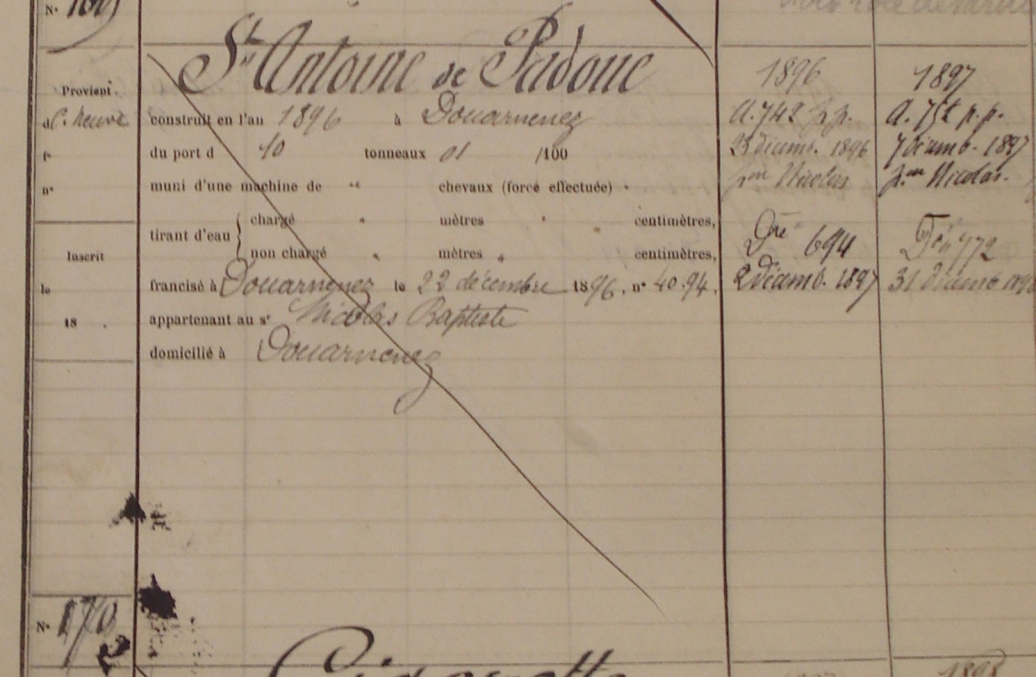 N°
St Antoine de Padoue
Provient
d C. neuve construit en l'an 1896 à Douarnenez
du port d 10 tonneaux 01 /100
n° muni d'une machine de " chevaux (force effectuée) "
tirant d'eau { chargé " mètres " centimètres,
non chargé " mètres " centimètres,
Inscrit
le francisé à Douarnenez le 22 décembre 1896, n° 4094.
18 . appartenant au sr Nicolas Baptiste
domicilié à Douarnenez
1896
a. 742 p.p.
23 décemb. 1896
pon Nicolas
Dre 694
2 Décemb. 1897
1897
a. 752 p.p.
7 décemb. 1897
pon Nicolas.
772
31
N° 170